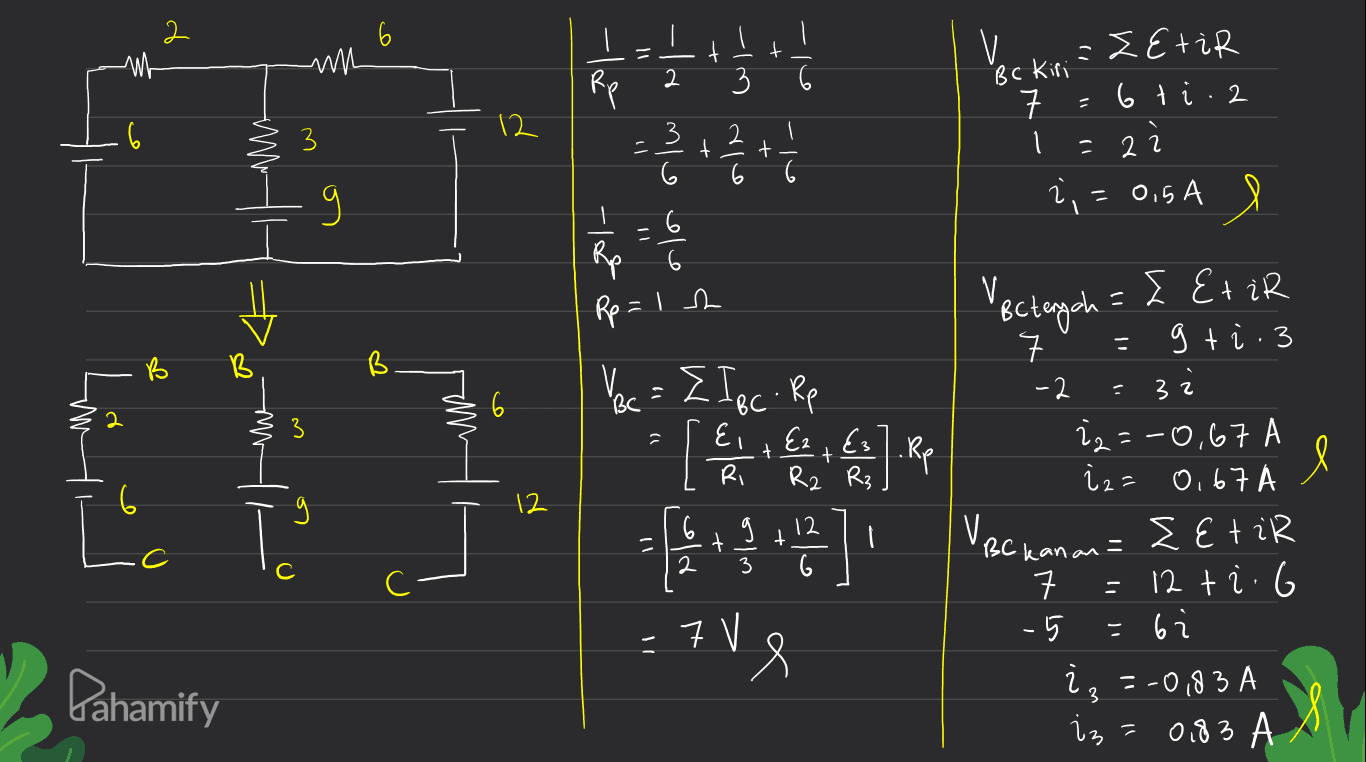 2
6
6
3
12
9
B
B
B
2
3
6
6
9
12
C
C
C
Pahamify
1/Rp = 1/2 + 1/3 + 1/6
= 3/6 + 2/6 + 1/6
1/Rp = 6/6
Rp = 1 Ω
V_BC = Σ I_BC . Rp
= [ε1/R1 + ε2/R2 + ε3/R3] . Rp
= [6/2 + 9/3 + 12/6] 1
= 7 V
V_BC kiri = Σ ε + iR
7 = 6 + i . 2
1 = 2 i
i1 = 0,5 A
V_BC tengah = Σ ε + iR
7 = 9 + i . 3
-2 = 3 i
i2 = -0,67 A
i2 = 0,67 A
V_BC kanan = Σ ε + iR
7 = 12 + i . 6
-5 = 6 i
i3 = -0,83 A
i3 = 0,83 A